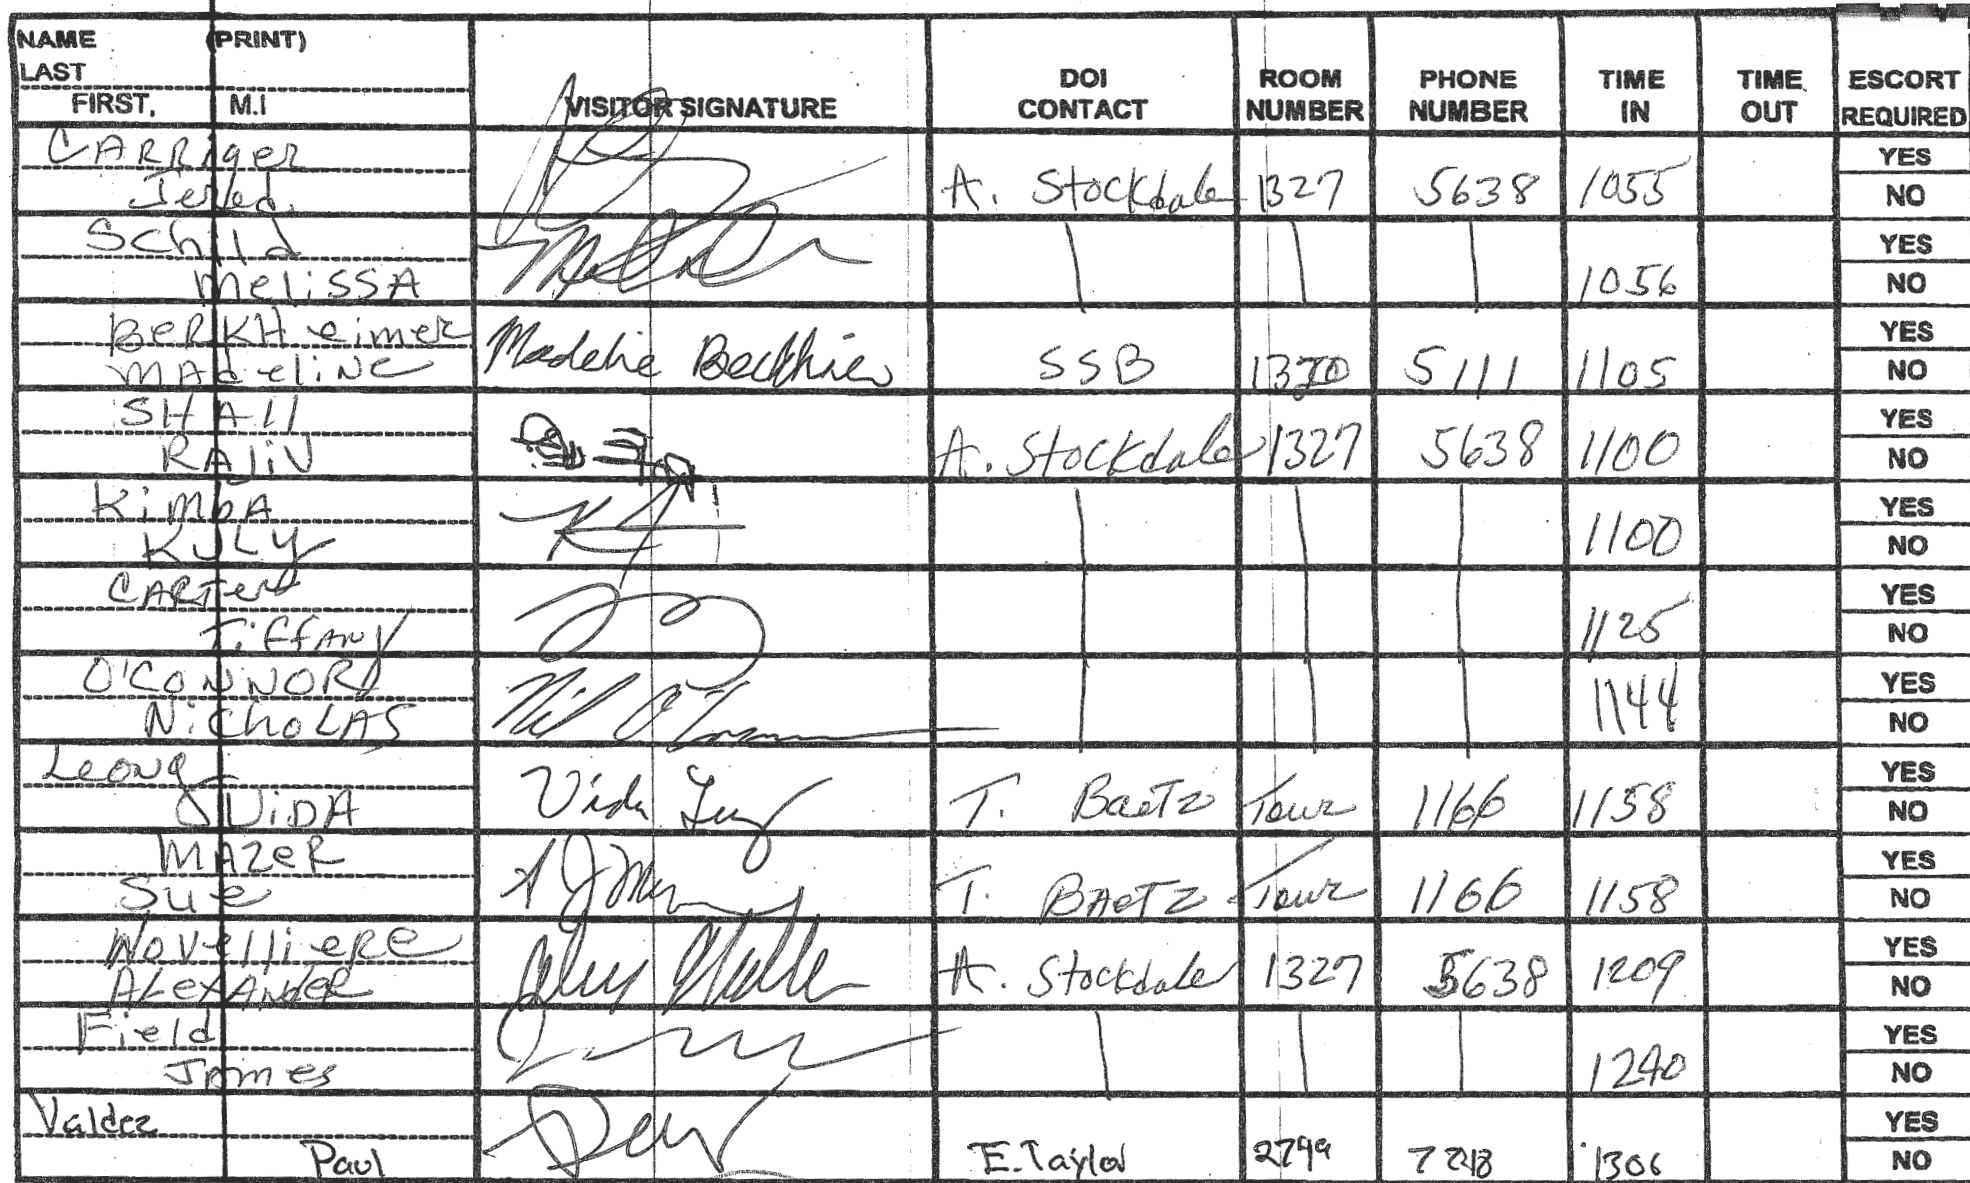 NAME (PRINT)
LAST
FIRST, M.I
VISITOR SIGNATURE
DOI CONTACT
ROOM NUMBER
PHONE NUMBER
TIME IN
TIME OUT
ESCORT REQUIRED
CARRiger
Jered. A. Stockdale 1327 5638 1055 YES NO
Schild
MeLiSSA 1056 YES NO
BeRKHeimer
MAdeliNe SSB 5111 1105 YES NO
SHAH
RAJiV A. Stockdale 1327 5638 1100 YES NO
KimbA
1100 YES NO
CARTer
TiffANy 1125 YES NO
O'CONNOR
NichoLAS 1144 YES NO
Leong
ViDA Vida T. BaeTz Tour 1166 1158 YES NO
MAZeR
Sue T. BAeTZ Tour 1166 1158 YES NO
NovellieRe
ALexANdeR A. Stockdale 1327 5638 1209 YES NO
Field
JAmes 1240 YES NO
Valdez
Paul E. Taylor 1306 YES NO